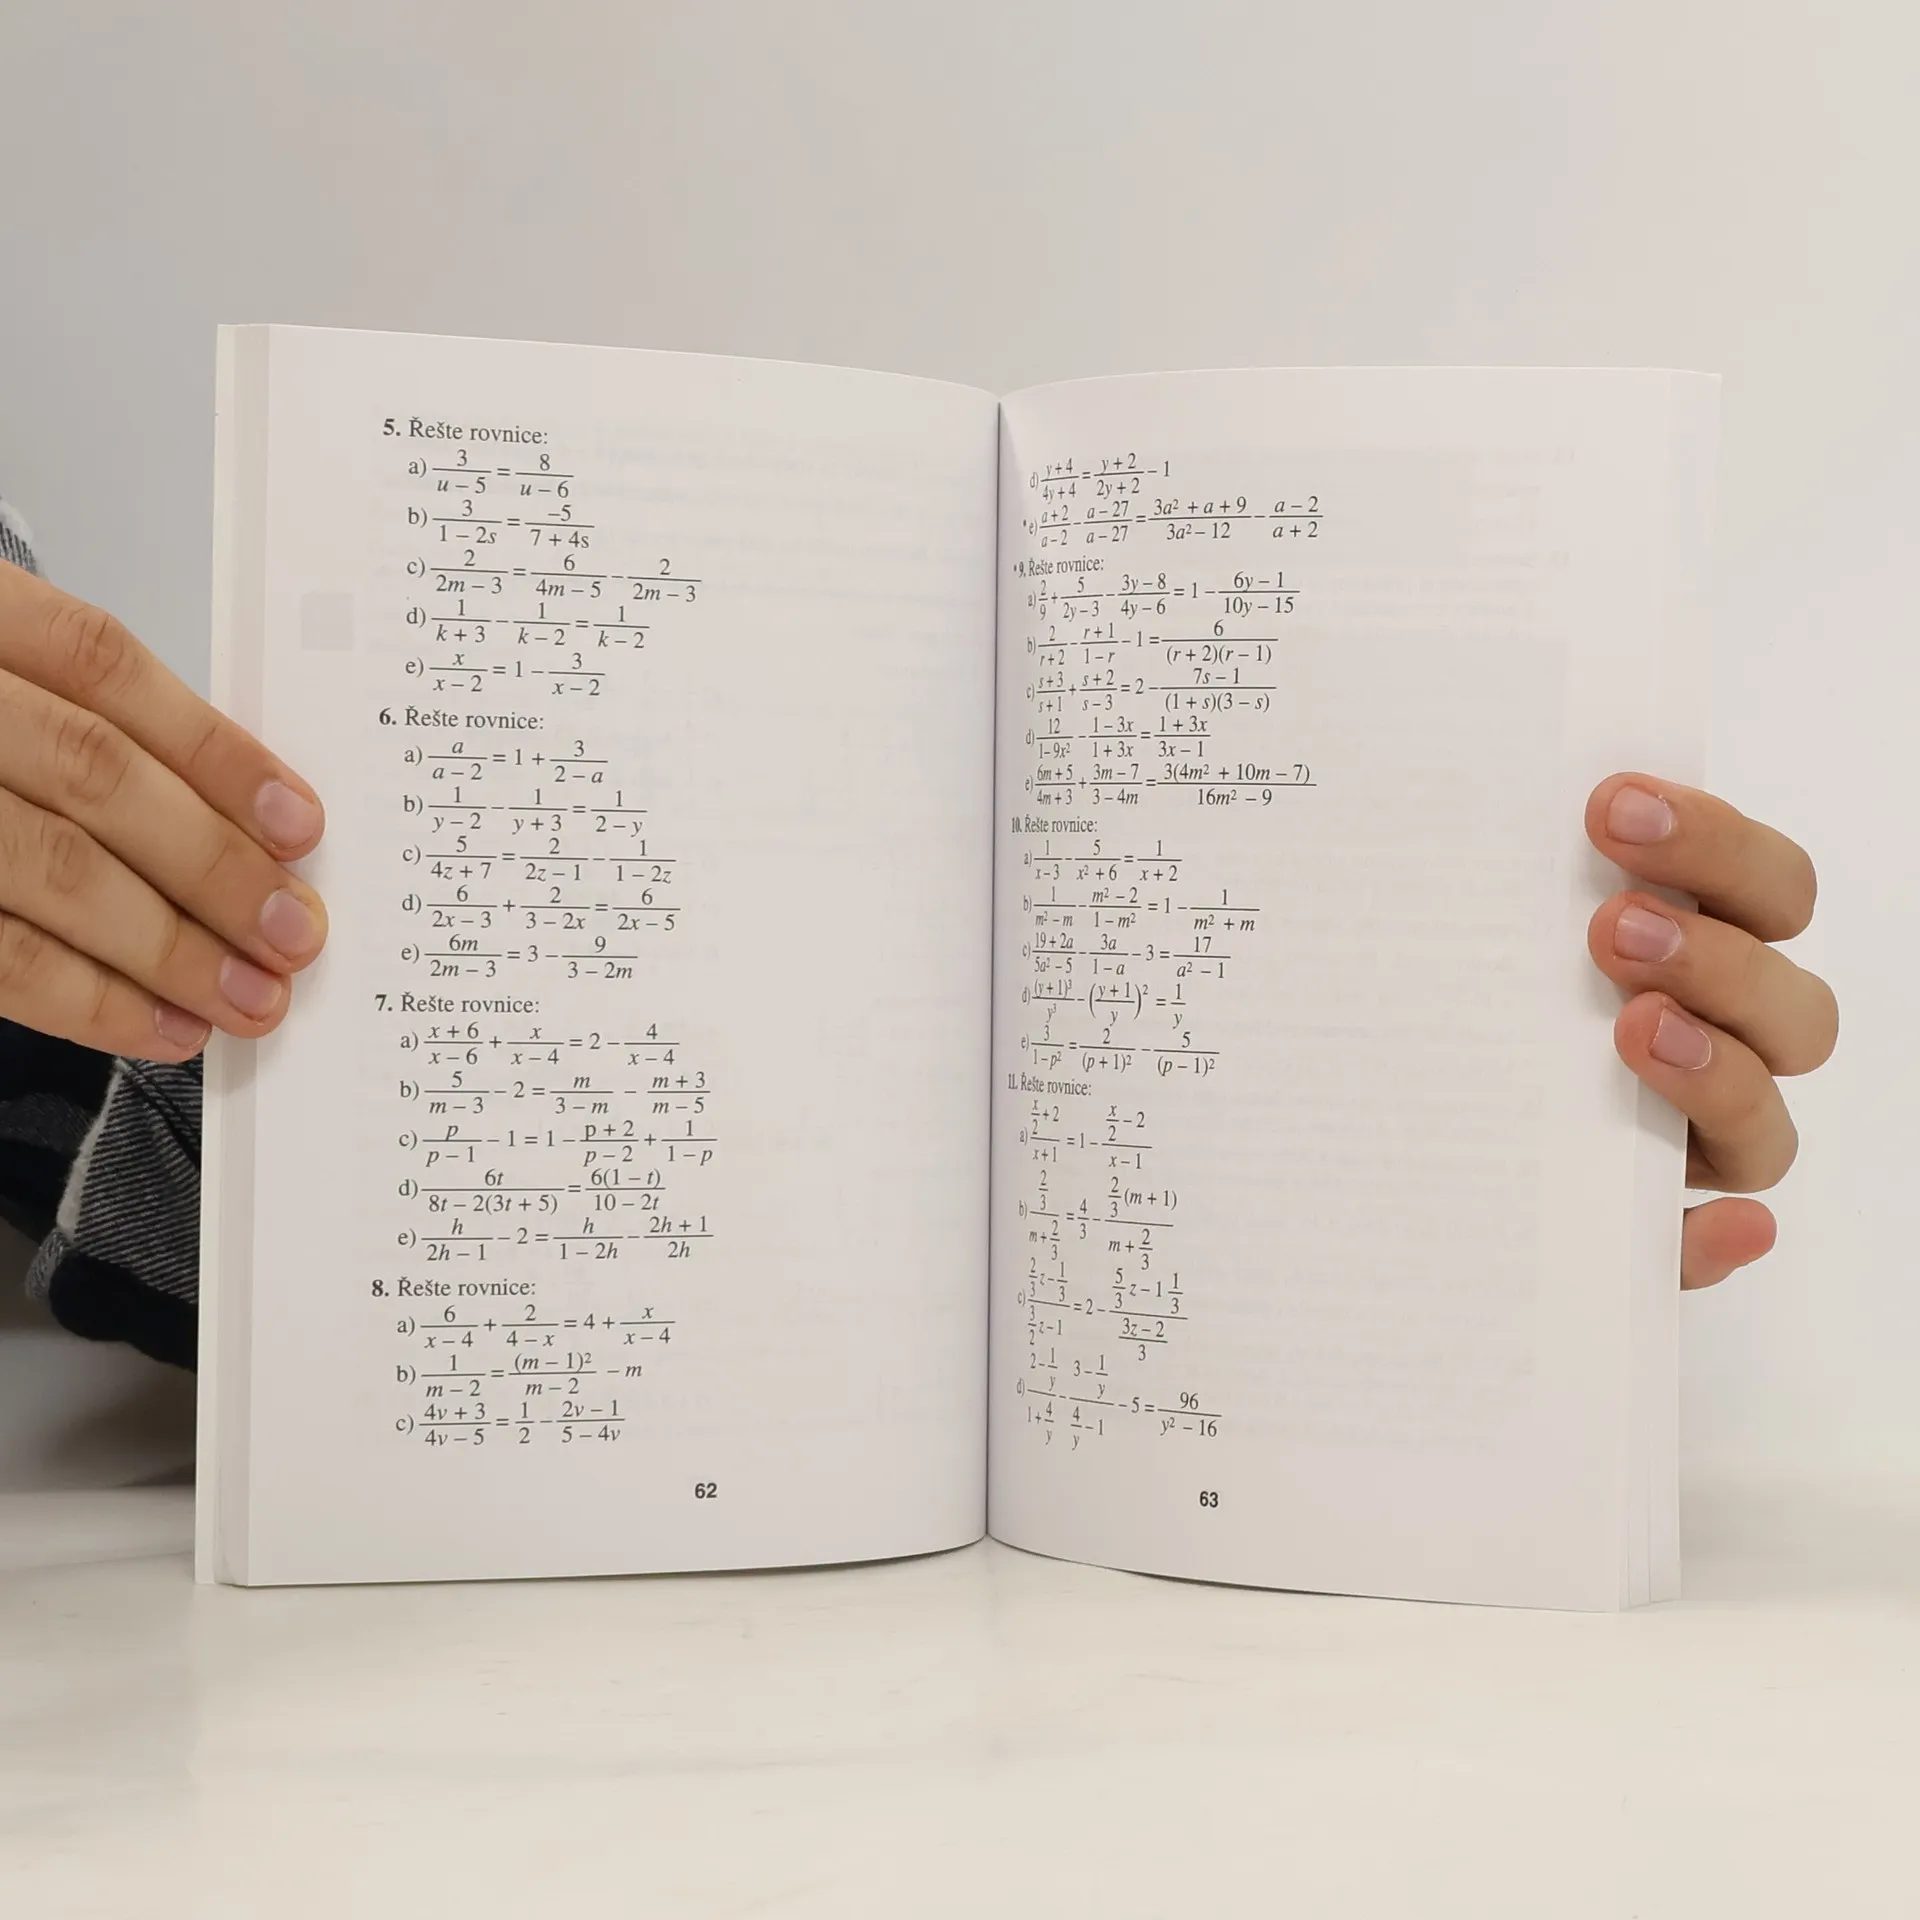 5. Řešte rovnice:
a) 3/(u – 5) = 8/(u – 6)
b) 3/(1 – 2s) = –5/(7 + 4s)
c) 2/(2m – 3) = 6/(4m – 5) – 2/(2m – 3)
d) 1/(k + 3) – 1/(k – 2) = 1/(k – 2)
e) x/(x – 2) = 1 – 3/(x – 2)
6. Řešte rovnice:
a) a/(a – 2) = 1 + 3/(2 – a)
b) 1/(y – 2) – 1/(y + 3) = 1/(2 – y)
c) 5/(4z + 7) = 2/(2z – 1) – 1/(1 – 2z)
d) 6/(2x – 3) + 2/(3 – 2x) = 6/(2x – 5)
e) 6m/(2m – 3) = 3 – 9/(3 – 2m)
7. Řešte rovnice:
a) (x + 6)/(x – 6) + x/(x – 4) = 2 – 4/(x – 4)
b) 5/(m – 3) – 2 = m/(3 – m) – (m + 3)/(m – 5)
c) p/(p – 1) – 1 = 1 – (p + 2)/(p – 2) + 1/(1 – p)
d) 6t/(8t – 2(3t + 5)) = 6(1 – t)/(10 – 2t)
e) h/(2h – 1) – 2 = h/(1 – 2h) – (2h + 1)/2h
8. Řešte rovnice:
a) 6/(x – 4) + 2/(4 – x) = 4 + x/(x – 4)
b) 1/(m – 2) = (m – 1)²/(m – 2) – m
c) (4v + 3)/(4v – 5) = 1/2 – (2v – 1)/(5 – 4v)
62
d) (y + 4)/(4y + 4) = (y + 2)/(2y + 2) – 1
*e) (a + 2)/(a – 2) – (a – 27)/(a – 27) = (3a² + a + 9)/(3a² – 12) – (a – 2)/(a + 2)
*9. Řešte rovnice:
a) 2/9 + 5/(2y – 3) – (3y – 8)/(4y – 6) = 1 – (6y – 1)/(10y – 15)
b) 2/(r + 2) – (r + 1)/(1 – r) – 1 = 6/((r + 2)(r – 1))
c) (s + 3)/(s + 1) + (s + 2)/(s – 3) = 2 – (7s – 1)/((1 + s)(3 – s))
d) 12/(1 – 9x²) – (1 – 3x)/(1 + 3x) = (1 + 3x)/(3x – 1)
e) (6m + 5)/(4m + 3) + (3m – 7)/(3 – 4m) = 3(4m² + 10m – 7)/(16m² – 9)
10. Řešte rovnice:
a) 1/(x – 3) – 5/(x² + 6) = 1/(x + 2)
b) 1/(m² – m) – (m² – 2)/(1 – m²) = 1 – 1/(m² + m)
c) (19 + 2a)/(5a² – 5) – 3a/(1 – a) – 3 = 17/(a² – 1)
d) (y + 1)³/y³ – ((y + 1)/y)² = 1/y
e) 3/(1 – p²) = 2/(p + 1)² – 5/(p – 1)²
11. Řešte rovnice:
a) (x/2 + 2)/(x + 1) = 1 – (x/2 – 2)/(x – 1)
b) (2/3)/(m + 2/3) = 4/3 – (2/3 (m + 1))/(m + 2/3)
c) (2/3 z – 1/3)/(3/2 z – 1) = 2 – (5/3 z – 1 1/3)/((3z – 2)/3)
d) (2 – 1/y)/(1 + 4/y) – (3 – 1/y)/(4/y – 1) – 5 = 96/(y² – 16)
63